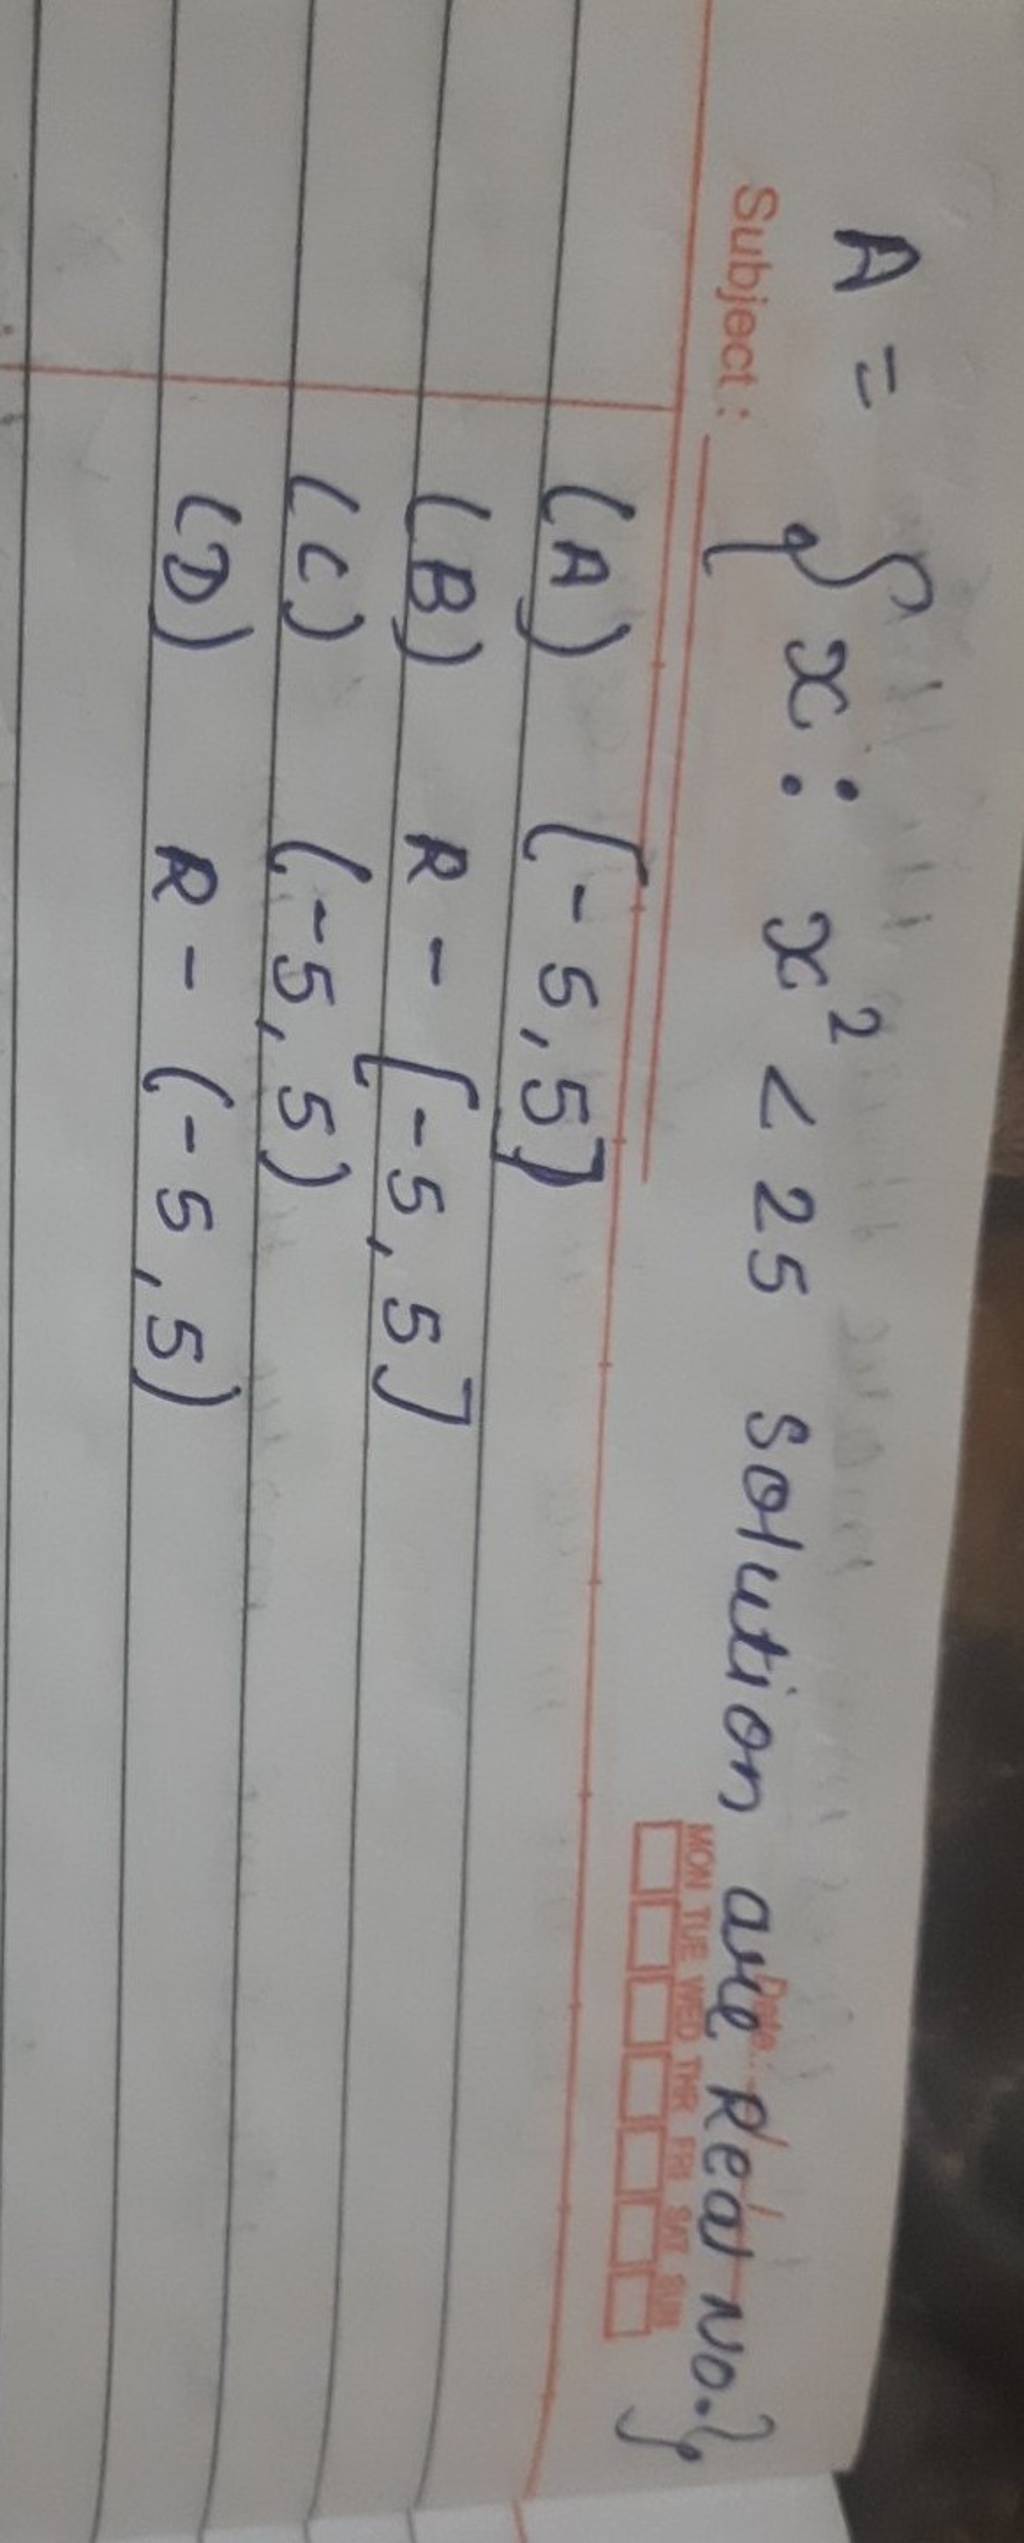 A = { x : x² < 25 solution are Real No.}
Subject :
Date
MON TUE WED THR FRI SAT SUN
(A) [-5, 5]
(B) R - [-5, 5]
(C) (-5, 5)
(D) R - (-5, 5)